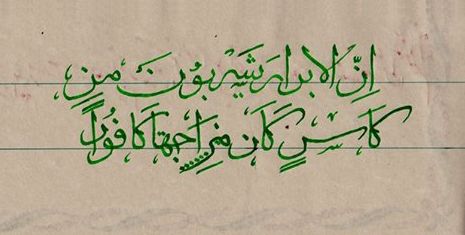 اِنَّ الابرار يَشربُونَ مِن
كَاسٍ كَانَ مِزاجُهَا كَافُورًا